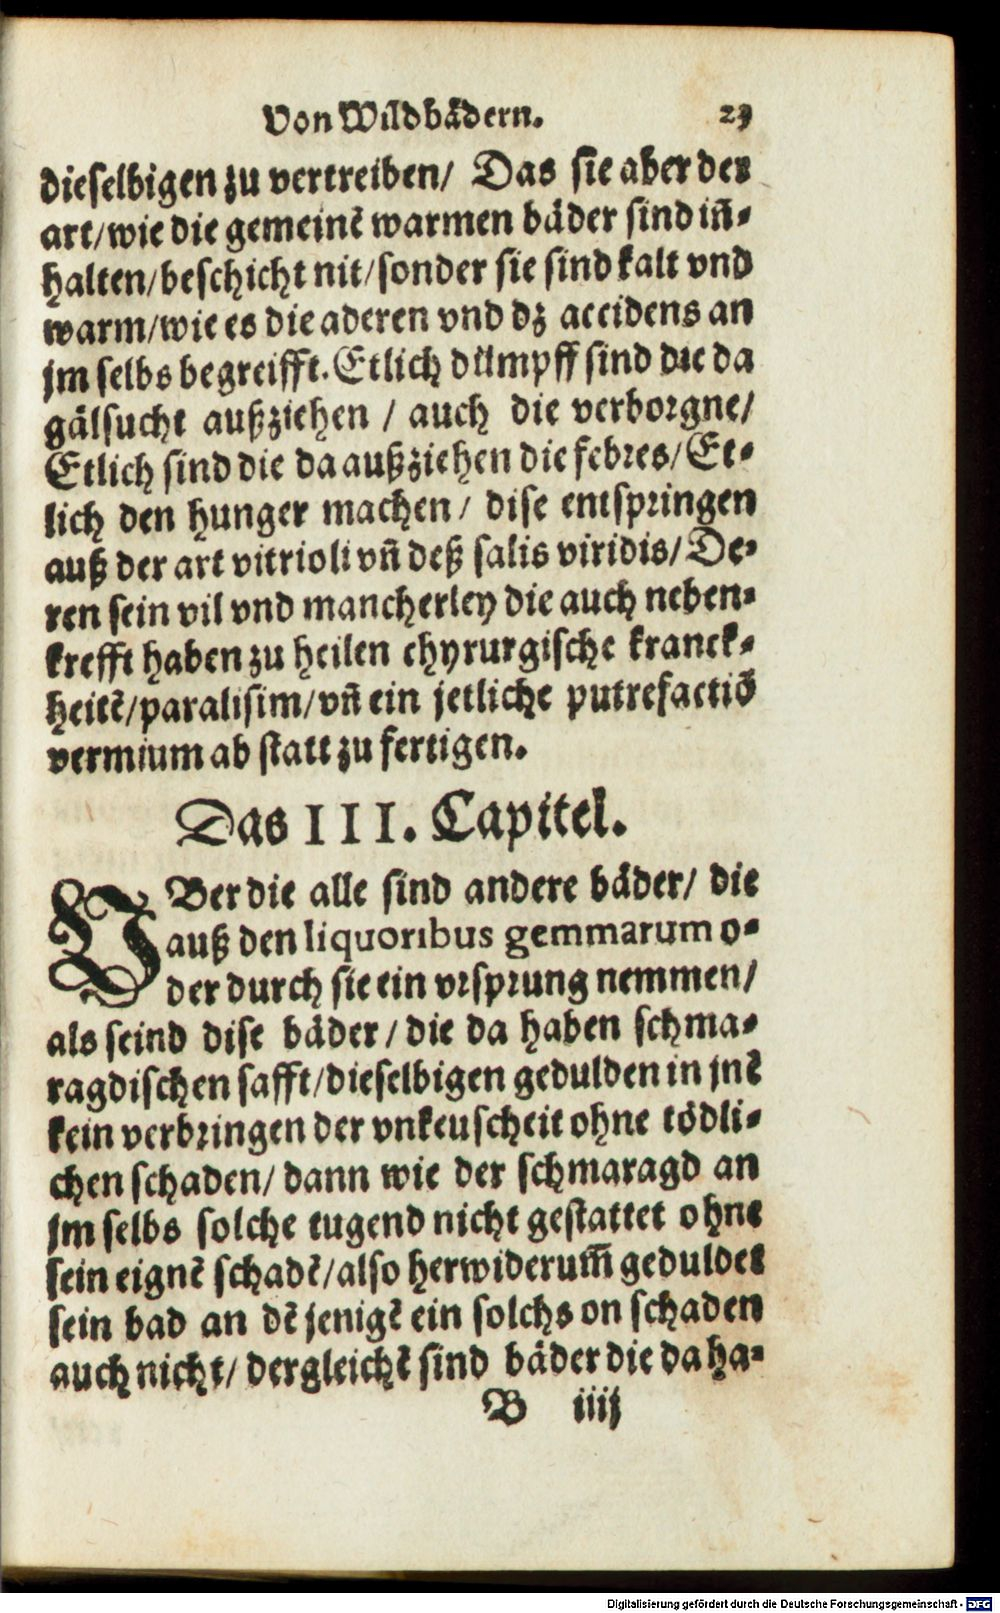 Von Wildbädern. 23
dieselbigen zu vertreiben/ Das sie aber der
art/wie die gemeinē warmen bäder sind in̄-
halten/beschicht nit/sonder sie sind kalt vnd
warm/wie es die aderen vnd dz accidens an
jm selbs begreifft. Etlich dümpff sind die da
gälsucht außziehen / auch die verborgne/
Etlich sind die da außziehen die febres/Et-
lich den hunger machen/ dise entspringen
auß der art vitrioli vn̄ deß salis viridis/De-
ren sein vil vnd mancherley die auch neben-
krefft haben zu heilen chyrurgische kranck-
heitē/paralisim/vn̄ ein jetliche putrefactiō
vermium ab statt zu fertigen.
Das III. Capitel.
VBer die alle sind andere bäder/ die
auß den liquoribus gemmarum o-
der durch sie ein vrsprung nemmen/
als seind dise bäder/die da haben schma-
ragdischen safft/dieselbigen gedulden in jnē
kein verbringen der vnkeuscheit ohne tödli-
chen schaden/dann wie der schmaragd an
jm selbs solche tugend nicht gestattet ohne
sein eignē schadē/also herwiderum̄ geduldet
sein bad an dē jenigē ein solchs on schaden
auch nicht/dergleichē sind bäder die da ha-
B iiij
Digitalisierung gefördert durch die Deutsche Forschungsgemeinschaft - DFG